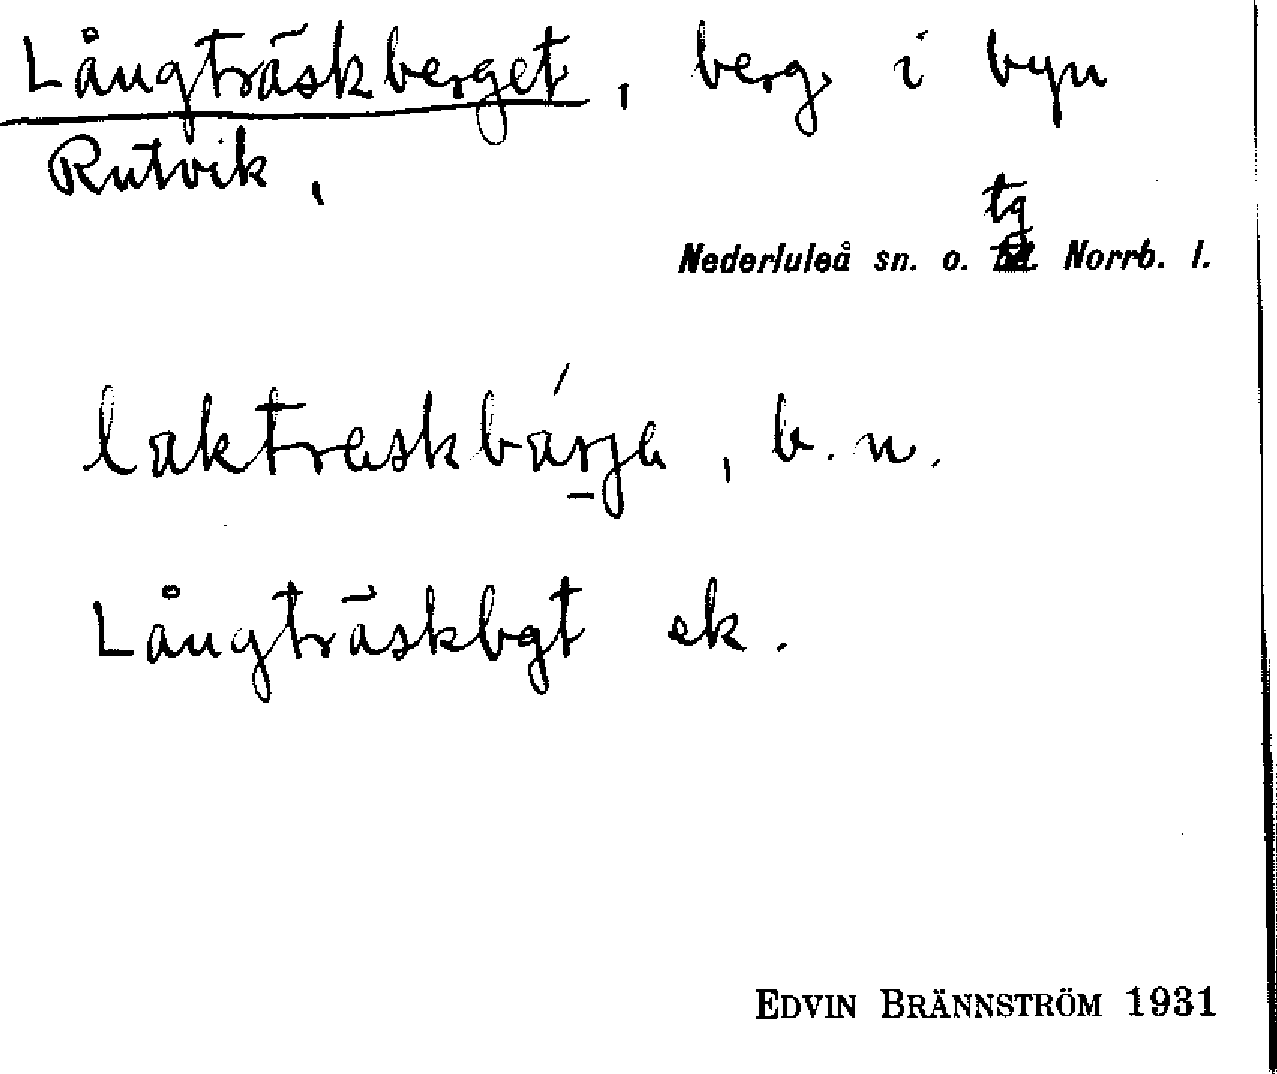 Långträskberget, berg i byn
Rutvik,
tg
Nederluleå sn. o. Norrb. l.
laktraskbárja, b. n.
Långträskbgt ek.
EDVIN BRÄNNSTRÖM 1931